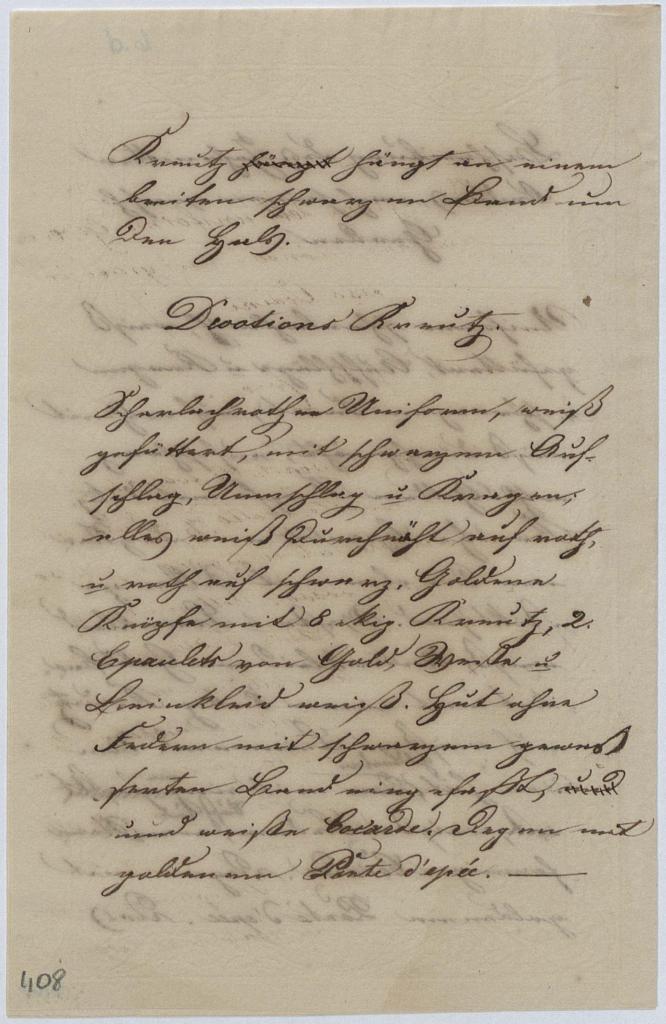 Kreutz hängt hängt an einem
breiten schwarzen Band um
den Hals.
Devotions Kreutz.
Scharlachrothe Uniform, weiß
gefüttert, mit schwarzem Auf-
schlag, Umschlag u Kragen,
alles weiß durchnäht auf roth,
u roth auf schwarz. Goldene
Knöpfe mit 8 ekig. Kreutz, 2.
Epaulets von Gold, Weste u
Beinkleid weiß. Hut ohne
Federn mit schwarzem gewas
serten Band eingefaßt, und
und weiße Cocarde. Degen mit
goldenem Porte d'epée.
408